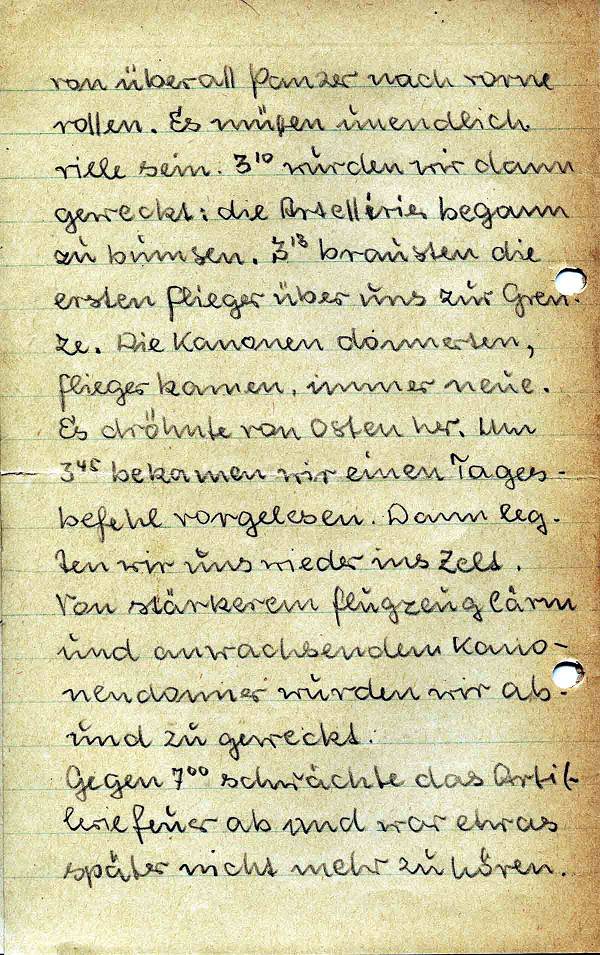 von überall Panzer nach vorne
rollen. Es müßen unendlich
viele sein. 3¹⁰ wurden wir dann
geweckt: die Artellerie begann
zu bumsen. 3¹⁸ brausten die
ersten Flieger über uns zur Gren-
ze. Die Kanonen donnerten,
Flieger kamen, immer neue.
Es dröhnte von Osten her. Um
3⁴⁵ bekamen wir einen Tages-
befehl vorgelesen. Dann leg-
ten wir uns wieder ins Zelt.
Von stärkerem Flugzeuglärm
und anwachsendem Kano-
nendonner wurden wir ab-
und zu geweckt.
Gegen 7⁰⁰ schwächte das Artil-
leriefeuer ab und war etwas
später nicht mehr zu hören.